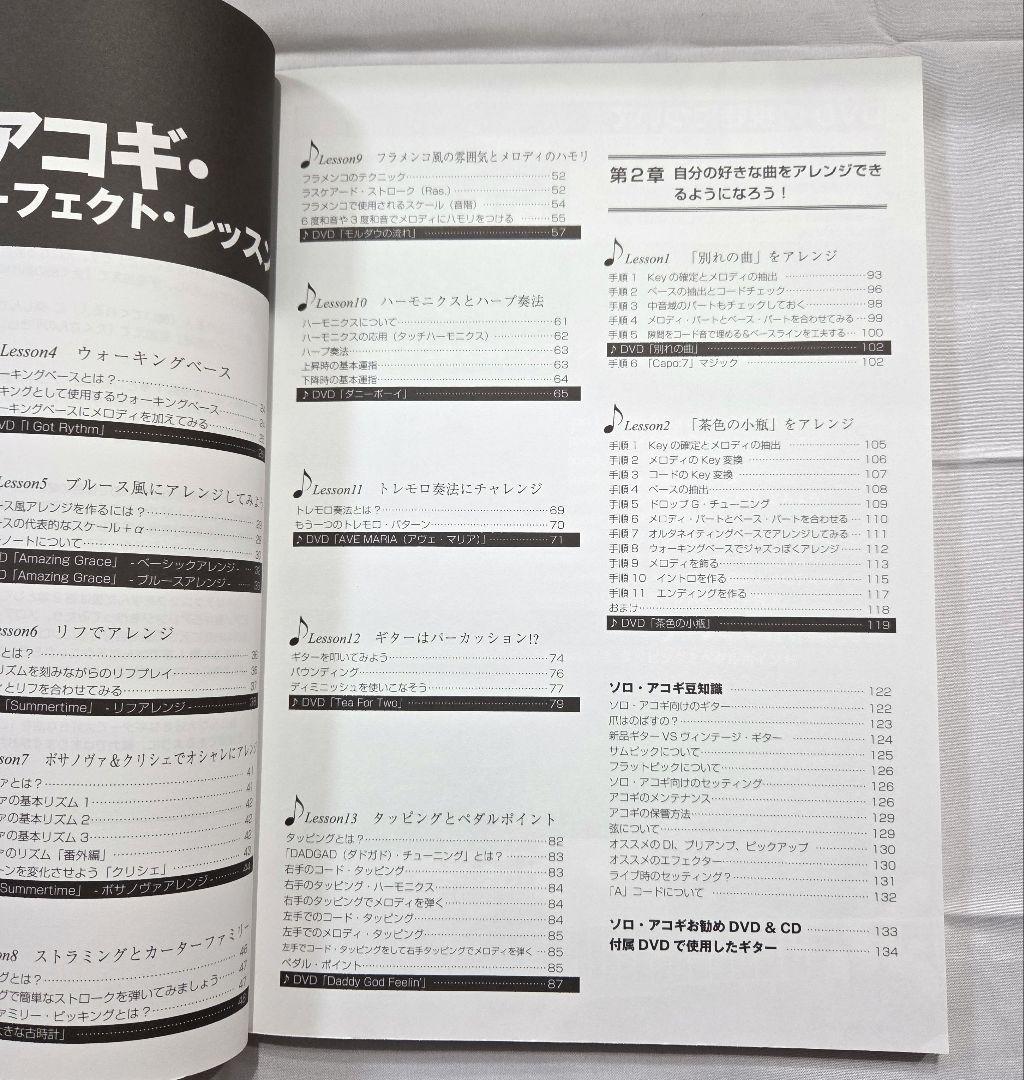 アコギ・
ーフェクト・レッスン
Lesson4 ウォーキングベース
ーキングベースとは？
キングとして使用するウォーキングベース 24
ーキングベースにメロディを加えてみる
VD「I Got Rythm」
Lesson5 ブルース風にアレンジしてみよう
ース風アレンジを作るには？
ースの代表的なスケール＋α
ーノートについて 30
VD「Amazing Grace」 - ベーシックアレンジ -
D「Amazing Grace」 - ブルースアレンジ -
esson6 リフでアレンジ
とは？ 36
リズムを刻みながらのリフプレイ 36
ィとリフを合わせてみる 37
「Summertime」 - リフアレンジ -
son7 ボサノヴァ＆クリシェでオシャレにアレンジ
ァとは？ 41
ァの基本リズム 1 41
ァの基本リズム 2 42
ァの基本リズム 3 42
ァのリズム「番外編」 42
ーンを変化させよう「クリシェ」 43
「Summertime」 - ボサノヴァアレンジ - 44
on8 ストラミングとカーターファミリー
グとは？ 46
グで簡単なストロークを弾いてみましょう 47
ァミリー・ピッキングとは？ 47
大きな古時計」 48
Lesson9 フラメンコ風の雰囲気とメロディのハモリ
フラメンコのテクニック 52
ラスケアード・ストローク（Ras.） 52
フラメンコで使用されるスケール（音階） 54
6度和音や3度和音でメロディにハモリをつける 55
♪DVD「モルダウの流れ」 57
Lesson10 ハーモニクスとハープ奏法
ハーモニクスについて 61
ハーモニクスの応用（タッチハーモニクス） 62
ハープ奏法 63
上昇時の基本運指 63
下降時の基本運指 64
♪DVD「ダニーボーイ」 65
Lesson11 トレモロ奏法にチャレンジ
トレモロ奏法とは？ 69
もう一つのトレモロ・パターン 70
♪DVD「AVE MARIA（アヴェ・マリア）」 71
Lesson12 ギターはパーカッション!?
ギターを叩いてみよう 74
パウンディング 76
ディミニッシュを使いこなそう 77
♪DVD「Tea For Two」 79
Lesson13 タッピングとペダルポイント
タッピングとは？ 82
「DADGAD（ダドガド）・チューニング」とは？ 83
右手のコード・タッピング 83
右手のタッピング・ハーモニクス 84
右手のタッピングでメロディを弾く 84
左手でのコード・タッピング 84
左手でのメロディ・タッピング 85
左手でコード・タッピングをして右手タッピングでメロディを弾く 85
ペダル・ポイント 85
♪DVD「Daddy God Feelin'」 87
第2章 自分の好きな曲をアレンジでき
るようになろう！
Lesson1 「別れの曲」をアレンジ
手順1 Keyの確定とメロディの抽出 93
手順2 ベースの抽出とコードチェック 96
手順3 中音域のパートもチェックしておく 98
手順4 メロディ・パートとベース・パートを合わせてみる 99
手順5 隙間をコード音で埋める＆ベースラインを工夫する 100
♪DVD「別れの曲」 102
手順6 「Capo:7」マジック 102
Lesson2 「茶色の小瓶」をアレンジ
手順1 Keyの確定とメロディの抽出 105
手順2 メロディのKey変換 106
手順3 コードのKey変換 107
手順4 ベースの抽出 108
手順5 ドロップG・チューニング 109
手順6 メロディ・パートとベース・パートを合わせる 110
手順7 オルタネイティングベースでアレンジしてみる 111
手順8 ウォーキングベースでジャズっぽくアレンジ 112
手順9 メロディを飾る 113
手順10 イントロを作る 115
手順11 エンディングを作る 117
おまけ 118
♪DVD「茶色の小瓶」 119
ソロ・アコギ豆知識 122
ソロ・アコギ向けのギター 122
爪はのばすの？ 123
新品ギターVSヴィンテージ・ギター 124
サムピックについて 125
フラットピックについて 126
ソロ・アコギ向けのセッティング 126
アコギのメンテナンス 126
アコギの保管方法 129
弦について 129
オススメのDI、プリアンプ、ピックアップ 130
オススメのエフェクター 130
ライブ時のセッティング？ 131
「A」コードについて 132
ソロ・アコギお勧めDVD＆CD 133
付属DVDで使用したギター 134